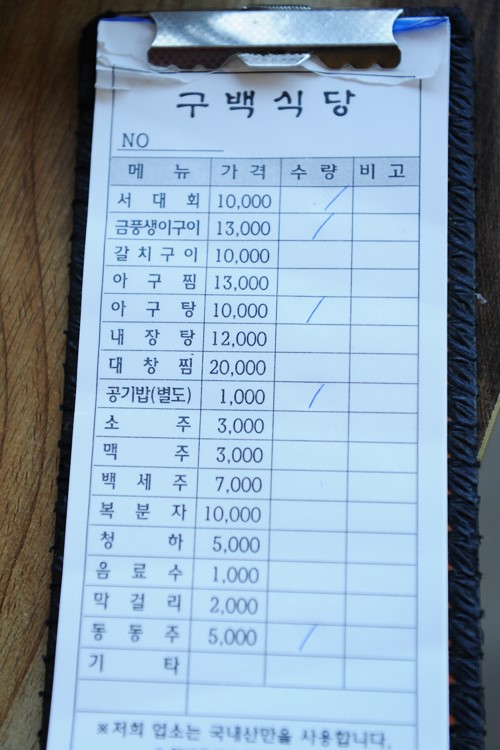 구백식당
NO
메 뉴 가 격 수 량 비 고
서 대 회 10,000 /
금풍생이구이 13,000 /
갈 치 구 이 10,000
아 구 찜 13,000
아 구 탕 10,000 /
내 장 탕 12,000
대 창 찜 20,000
공기밥(별도) 1,000 /
소 주 3,000
맥 주 3,000
백 세 주 7,000
복 분 자 10,000
청 하 5,000
음 료 수 1,000
막 걸 리 2,000
동 동 주 5,000 /
기 타
※저희 업소는 국내산만을 사용합니다.